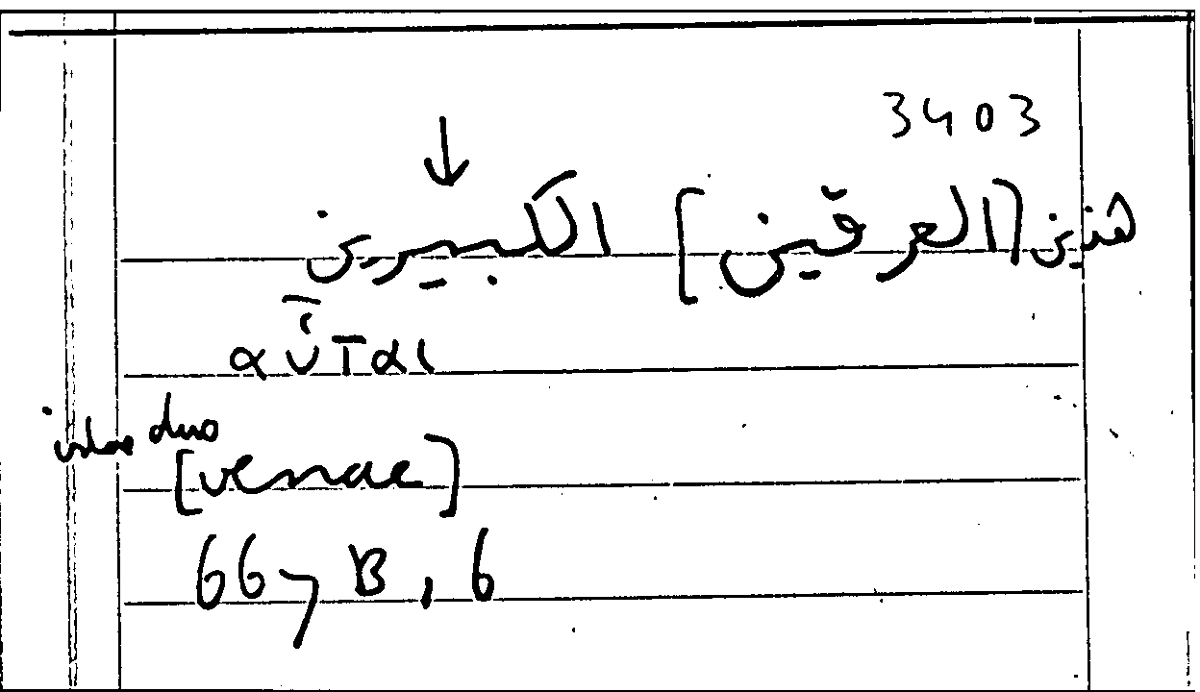 3403
↓
هذين [العرقين] الكبيرين
αὗται
istae duo
[venae]
667 B, 6